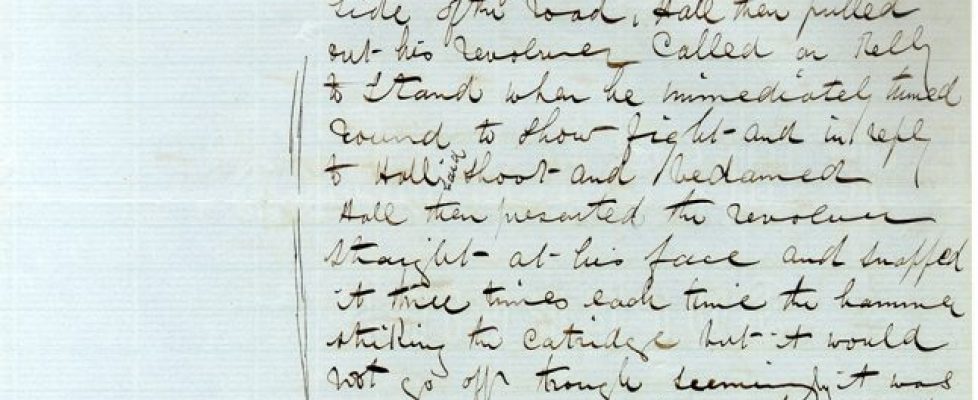 side of the road, Hall then pulled
out his revolver called on Kelly
to Stand when he immediately turned
round to show fight and in reply
to Hall said Shoot and bedamed
Hall then presented the revolver
straight at his face and snapped
it three times each time the hammer
striking the catridge but it would
not go off trough seemingly it was